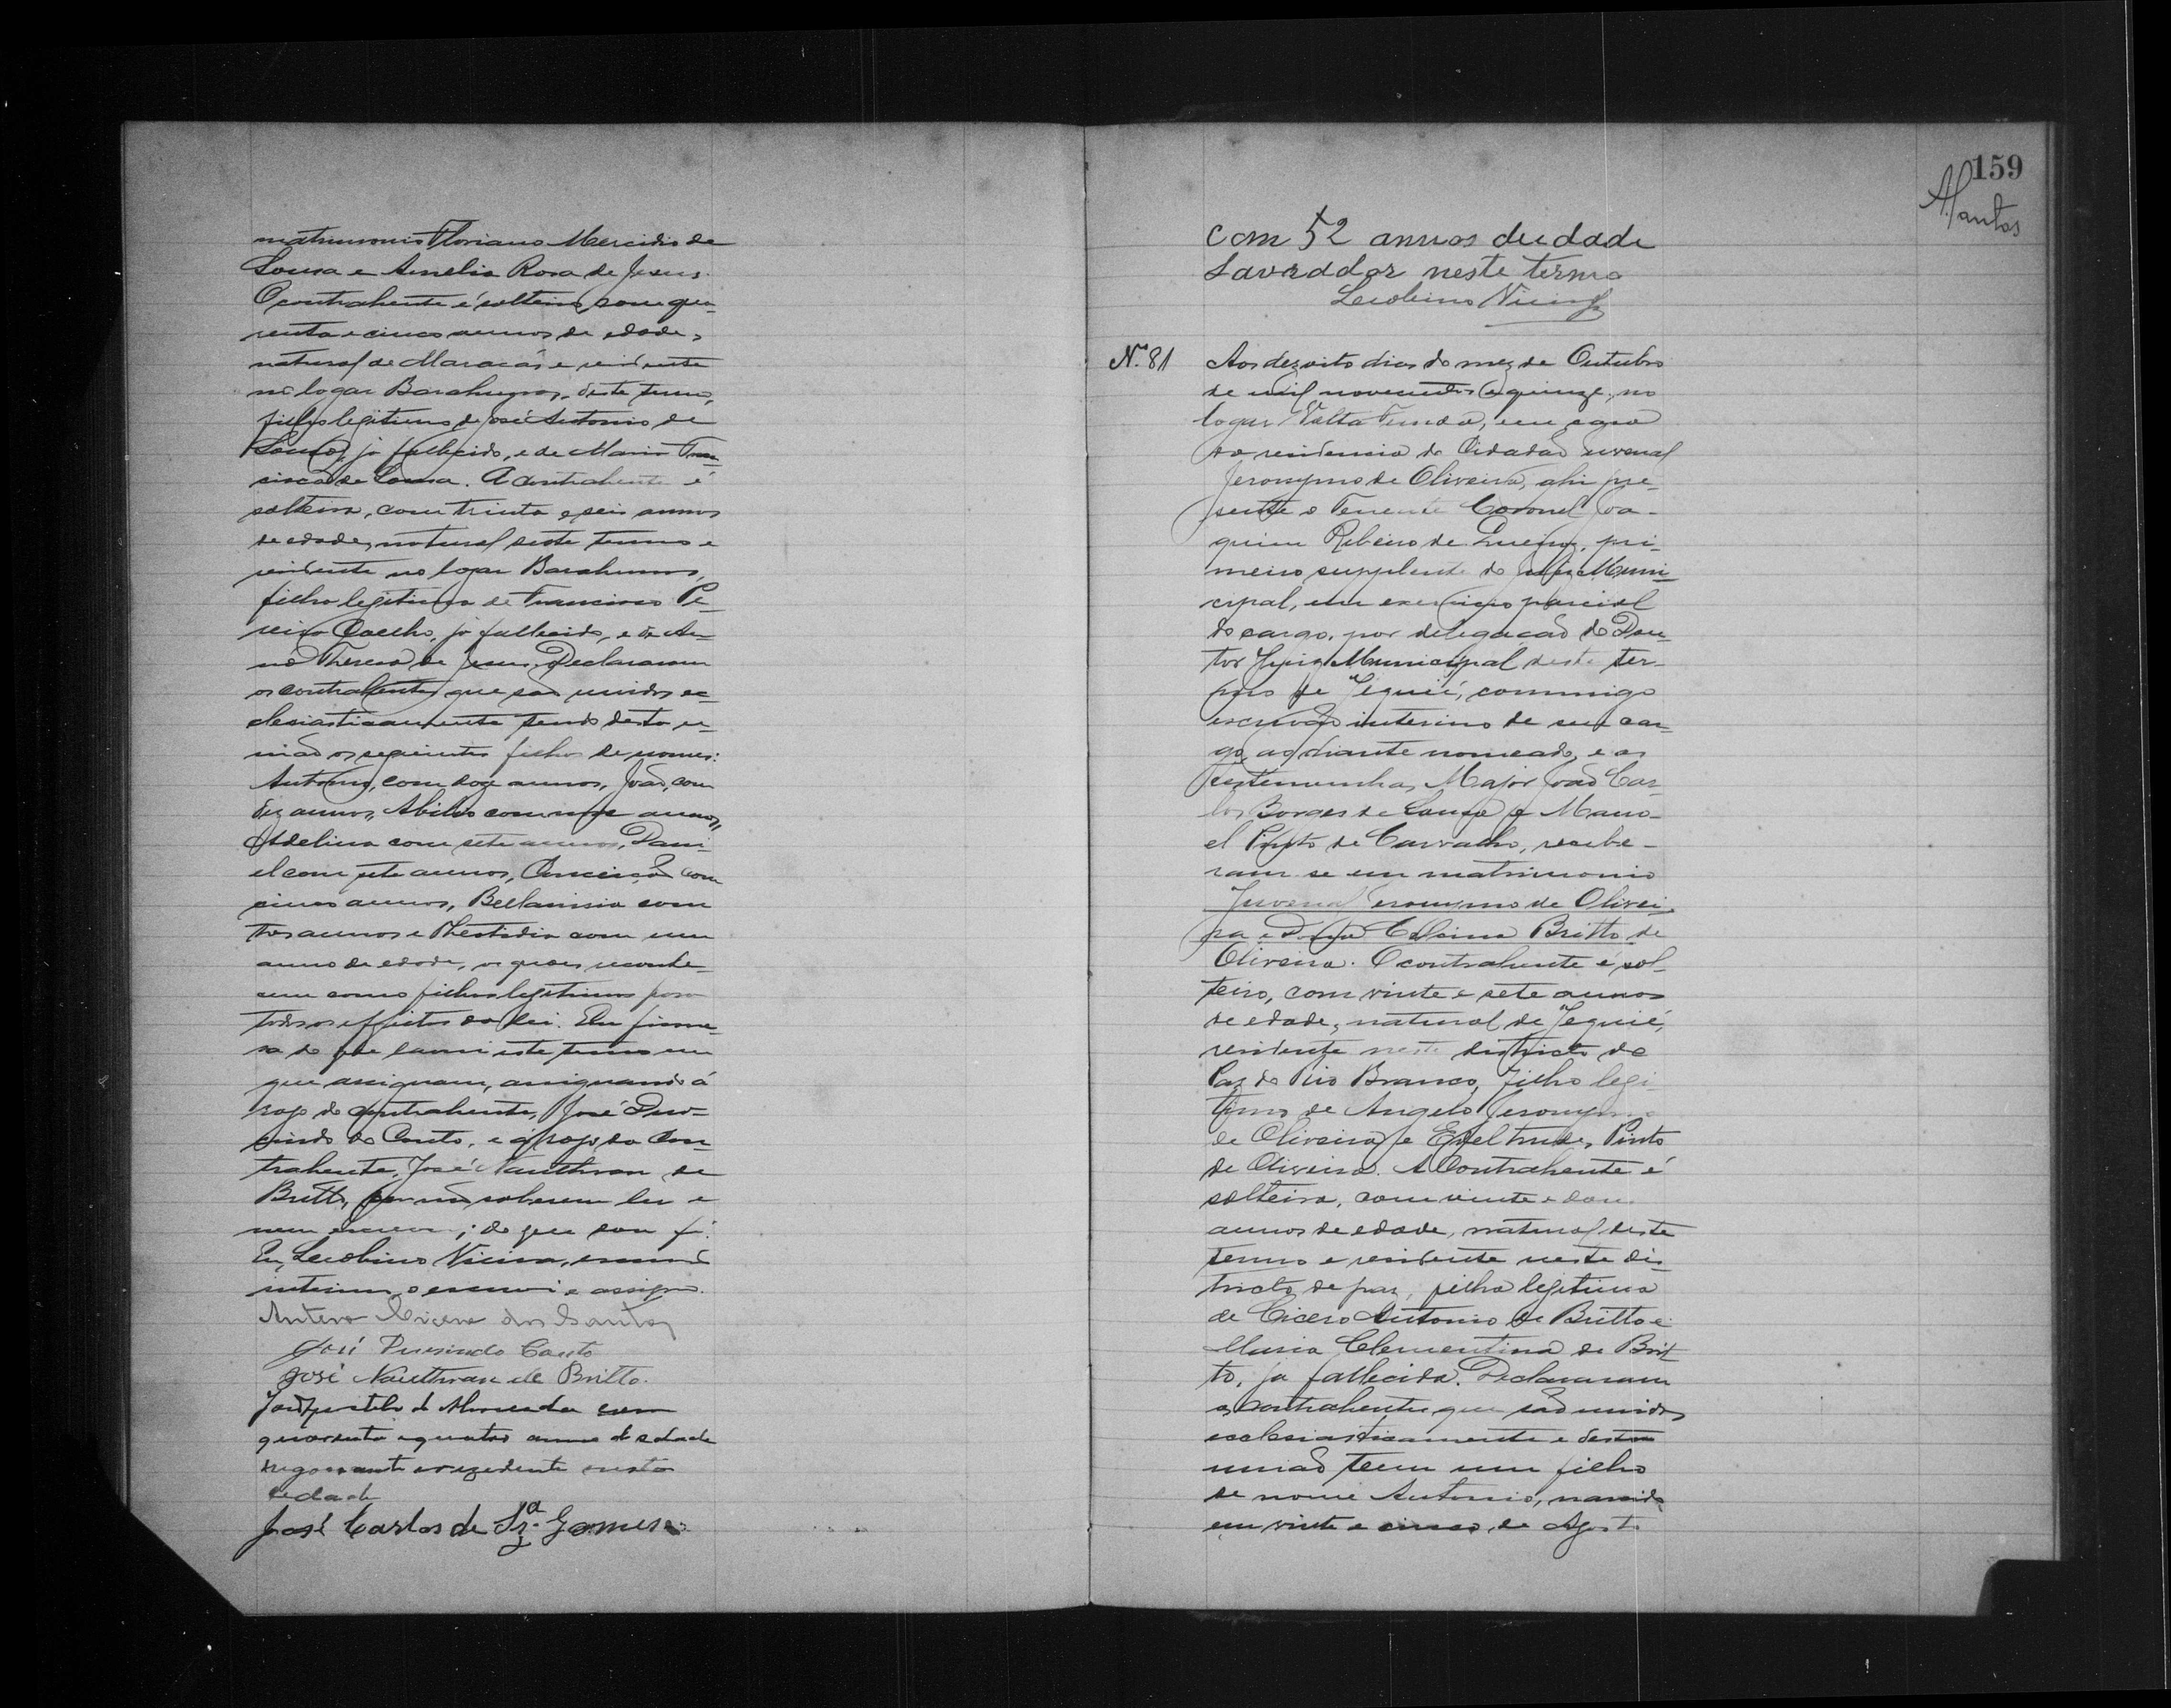 matrimonio Floriano Mercidio de
Sousa e Amelia Rosa de Jesus.
O contrahente é solteiro, com qua-
renta e cinco annos de edade,
natural de Maracás e residente
no logar Barahunas, deste termo,
filho legitimo de José Antonio de
Sousa, já fallecido, e de Maria Fran-
cisca de Sousa. A contrahente é
solteira, com trinta e seis annos
de edade, natural deste termo e
residente no logar Barahunas,
filha legitima de Francisco Pe-
reira Coelho, já fallecido, e de An-
na Thereza de Jesus. Declararam
os contrahentes que são unidos ec-
clesiasticamente tendo desta u-
nião os seguintes filhos de nomes:
Antonio, com doze annos, João, com
dez annos, Abilio com nove annos,
Adelina com sete annos, Dani-
el com sete annos, Conceição com
cinco annos, Bellanisia com
tres annos e com um
anno de edade, os quaes reconhe-
cem como filhos legitimos para
todos os effeitos da lei. Em firme-
sa do que lavrei este termo em
que assignam, assignando á
rogo do contrahente, José Duro-
sindo do Couto, e á rogo da con-
trahente, José Nauthwan de
Britto, por não saberem ler e
nem escrever; do que dou fé.
Eu, Leolino Vieira, escrivão
interino, o escrevi e assigno.
Antero Cicero dos Santos
José Couto
José Nauthwan de Britto.
João de Almeida com
quarenta e quatro annos de edade
negociante e rezedente nesta
cidade
José Carlos de Sza. Gomes
159
ASantos
com 52 annos de edade
Lavrador neste termo
Leolino Vieira
No. 81
Aos dezoito dias do mez de Outubro
de mil novecentos e quinze, no
logar Volta Funda, em casa
da residencia do Cidadão Juvenal
Jeronymo de Oliveira, ahi pre-
sente o Tenente Coronel Joa-
quim Ribeiro de Queiroz, pri-
meiro supplente do Juiz Muni-
cipal, em exercicio parcial
do cargo, por delegacão do Dou-
tor Juiz Municipal deste ter-
mo de Jequié, commigo
escrivão interino de seu car-
go, ao diante nomeado, e as
testemunhas, Major João Car-
los Borges de Sousa e Mano-
el Pinto de Carvalho, recebe-
ram se em matrimonio
Juvenal Jeronymo de Olivei-
ra e Dona Britto de
Oliveira. O contrahente é sol-
teiro, com vinte e sete annos
de edade, natural de Jequié,
residente neste districto de
Paz do Rio Branco, filho legi-
timo de Angelo Jeronymo
de Oliveira e Edeltrudes Pinto
de Oliveira. A Contrahente é
solteira, com vinte e dous
annos de edade, natural deste
termo e residente neste dis-
tricto de paz, filha legitima
de Cicero Antonio de Britto e
Maria Clementina de Brit-
to, já fallecida. Declararam
os contrahentes que são unidos
ecclesiasticamente e desta
união teem um filho
de nome Antonio, nascido
em vinte e cinco de Agosto